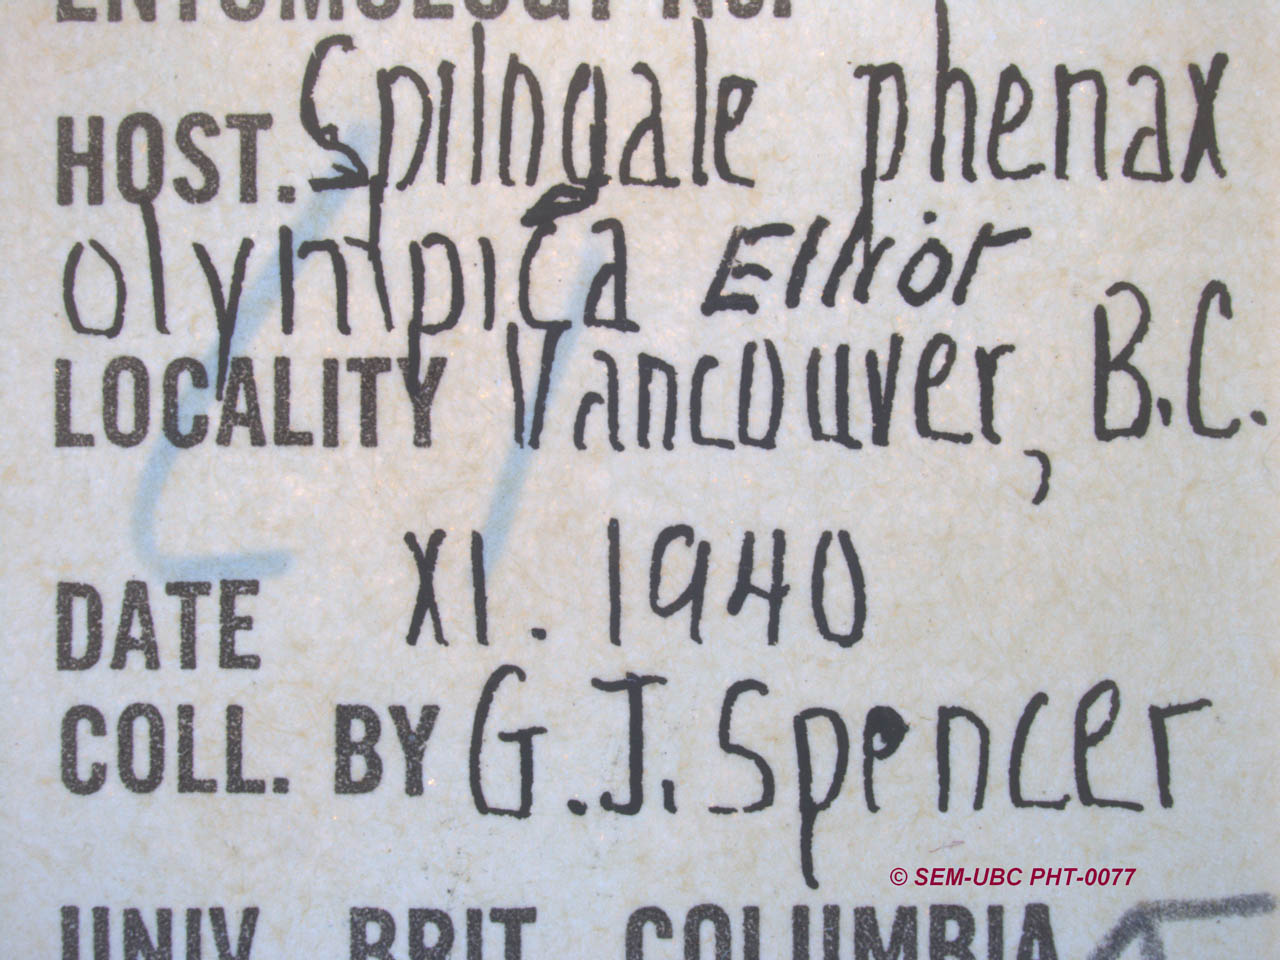 ENTOMOLOGY NO.
HOST. Spilngale phenax
olympica Elliot
LOCALITY Vancouver, B.C.
DATE XI. 1940
COLL. BY G.J. Spencer
© SEM-UBC PHT-0077
UNIV. BRIT. COLUMBIA